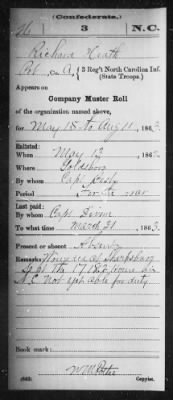 (Confederate.)
H 3 N.C.
Richard Heath
Pvt, Co. A, 3 Reg't North Carolina Inf.
(State Troops.)
Appears on
Company Muster Roll
of the organization named above,
for May 18 to Aug 11, 1863.
Enlisted:
When May 13, 186
Where Goldsboro
By whom Capt
Period for the war
Last paid:
By whom Capt
To what time March 31, 1863.
Present or absent Absent
Remarks: Wounded at Sharpsburg
Sept the 17, 1862, home in
N.C. Not yet able for duty
Book mark:
(642)
Copyist.